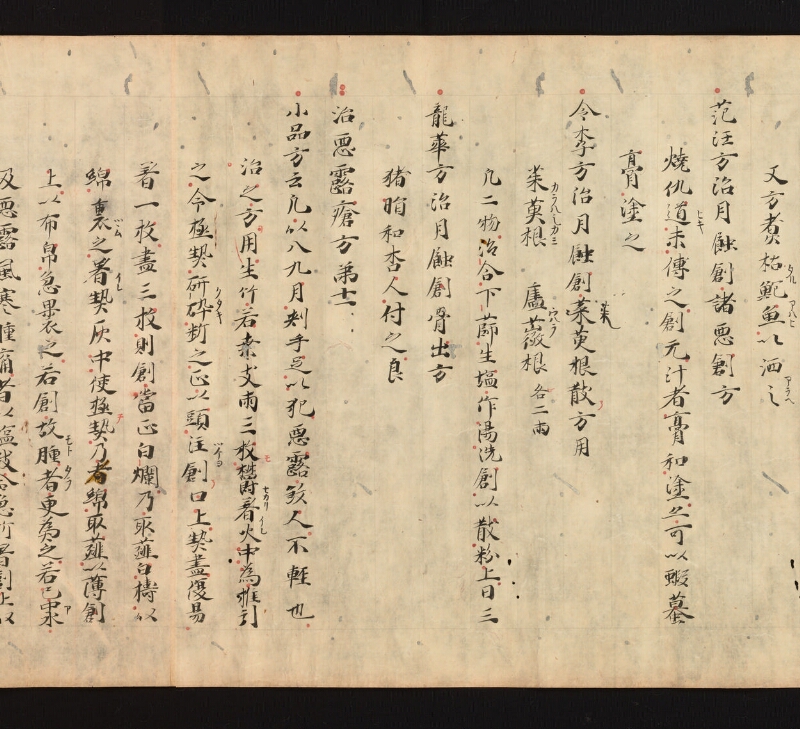 又方煮枯鮑魚以洒之
范汪方治月蝕創諸悪創方
燒仇道末傅之創无汁者膏和塗之可以蝦蟇
膏塗之
令李方治月蝕創茱萸根散方用
茱萸根 薔薇根 各二兩
凡二物治合下篩生塩作湯洗創以散粉上日三
龍華方治月蝕創骨出方
猪𦜝和杏人付之良
治悪露瘡方第十二
小品方云凡以八九月刺手足以犯悪露煞人不軽也
治之方用生竹若桒支兩三枚 著火中為推引
之令極𤍠斫碎断之正以頭注創口上𤍠盡復易
著一枚盡三枚則創當正白爛乃取薤白擣以
綿裹之著𤍠灰中使極𤍠乃者綿取薤以薄創
上以布帛急裹之若創故腫者更為之若已褁
及悪露風寒腫痛者以塩 令急 著創上以